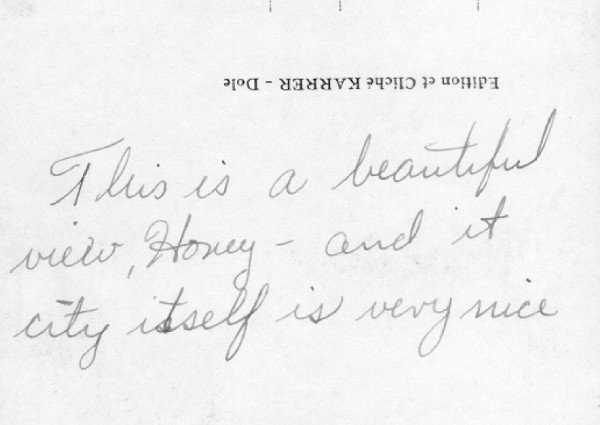 Edition et Cliché KARRER - Dole
This is a beautiful
view, Honey - and it
city itself is very nice